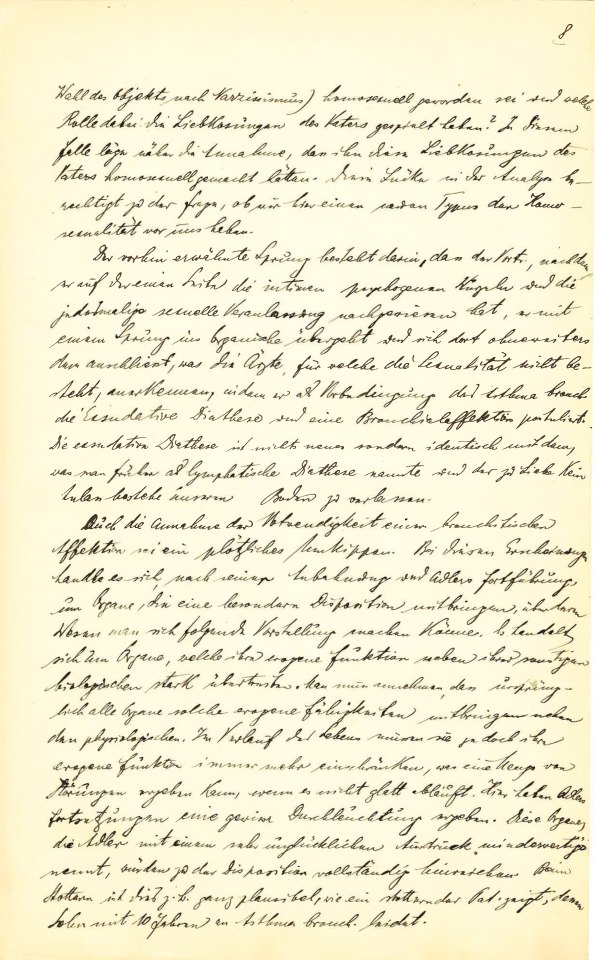 8
Wahl des Objekts nach Narzissmus) homosexuell geworden sei und welche
Rolle dabei die Liebkosungen des Vaters gespielt haben? In diesem
Falle läge näher die Annahme, dass ihn diese Liebkosungen des
Vaters homosexuell gemacht hätten. Diese Lücke in der Analyse be-
rechtigt zu der Frage, ob wir hier einen neuen Typus der Homo-
sexualität vor uns haben.
Der vorhin erwähnte Sprung besteht darin, dass der Vortr., nachdem
er auf der einen Seite die intimen psychogenen Wurzeln und die
jedesmalige sexuelle Veranlassung nachgewiesen hat, er mit
einem Sprung ins Organische übergeht und sich dort ohneweiters
dem anschliesst, was die Ärzte, für welche die Sexualität nicht be-
steht, anerkennen, indem er als Vorbedingung des Asthma bronch.
die Exsudative Diathese und eine Bronchialaffektion postuliert.
Die exsudative Diathese ist nichts neues sondern identisch mit dem,
was man früher als lymphatische Diathese nannte und der zu Liebe kein
Anlass bestehe unseren Boden zu verlassen.
Auch die Annahme der Notwendigkeit einer bronchitischen
Affektion sei ein plötzliches Umkippen. Bei diesen Erscheinungen
handle es sich, nach seiner Anbahnung und Adlers Fortführung,
um Organe, die eine besondere Disposition mitbringen, über deren
Wesen man sich folgende Vorstellung machen könne. Es handelt
sich um Organe, welche ihre erogene Funktion neben ihrer sonstigen
biologischen stark übertreiben. Man muss annehmen, dass ursprüng-
lich alle Organe solche erogene Fähigkeiten mitbringen neben
den physiologischen. Im Verlauf des Lebens müssen sie jedoch ihre
erogene Funktion immer mehr einschränken, was eine Menge von
Störungen ergeben kann, wenn es nicht glatt abläuft. Hier haben Adlers
Fortsetzungen eine gewisse Durchleuchtung ergeben. Diese Organe,
die Adler mit einem sehr unglücklichen Ausdruck "minderwertige"
nennt, würden zu der Disposition vollständig hinreichen. Beim
Stottern ist dies z.B. ganz plausibel, wie ein stotternder Pat. zeigt, dessen
Sohn mit 10 Jahren an Asthma bronch. leidet.